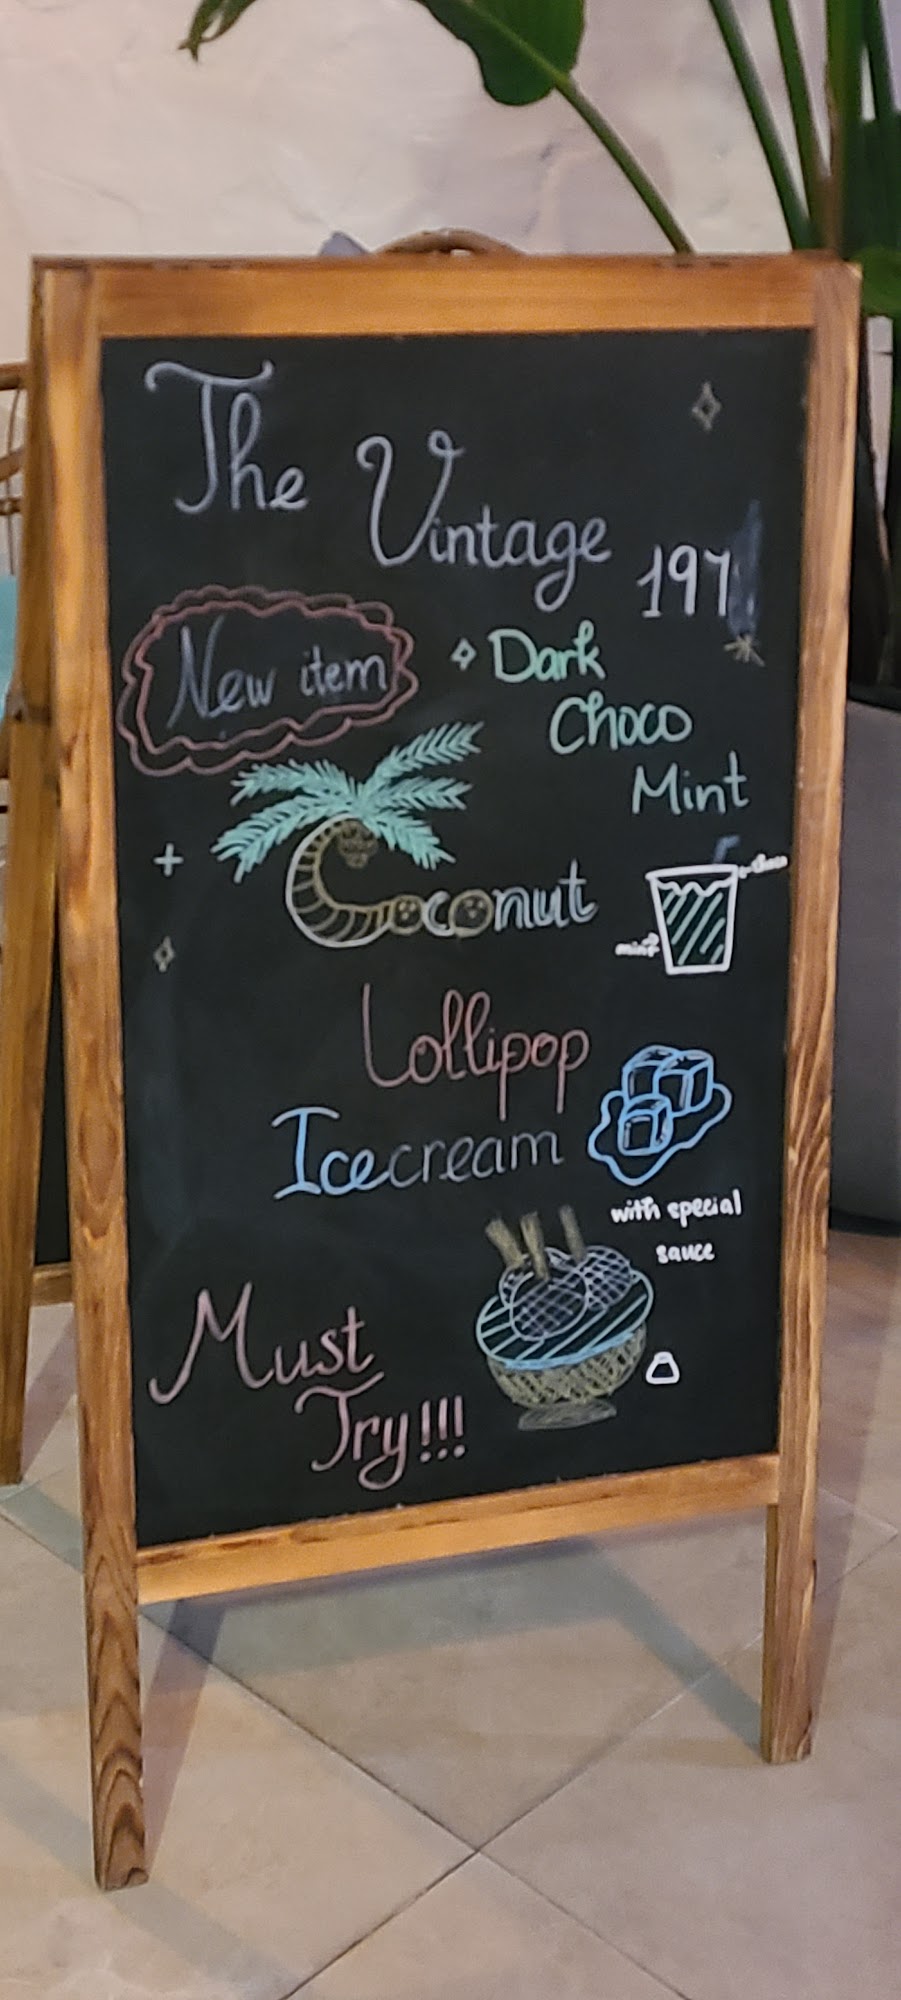 The Vintage 197
New item
Dark
Choco
Mint
+
Coconut
choco
mint
Lollipop
Icecream
with special
sauce
Must
Try!!!